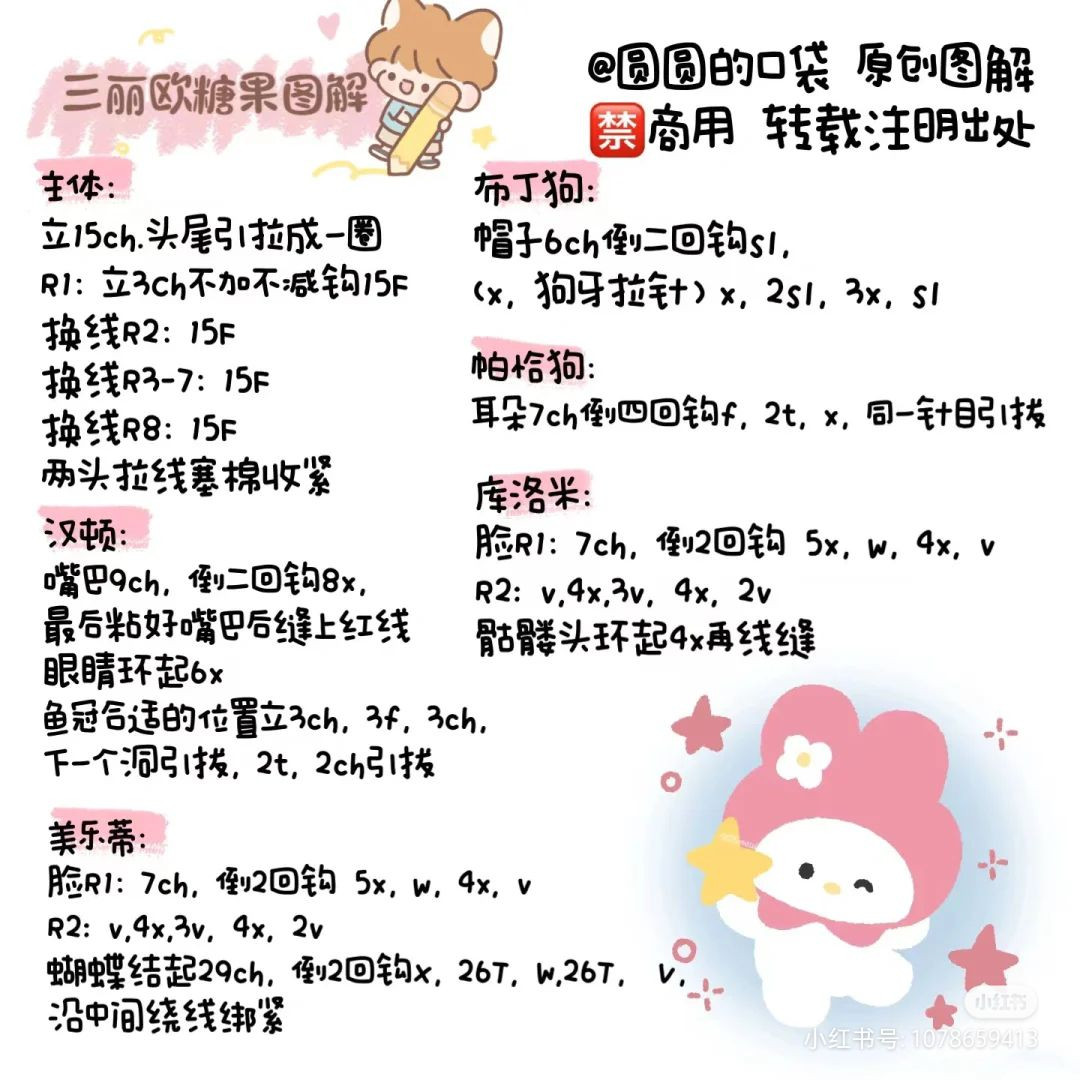 三丽欧糖果图解
@圆圆的口袋 原创图解
禁商用 转载注明出处
主体:
立15ch.头尾引拉成一圈
R1: 立3ch不加不减钩15F
换线R2: 15F
换线R3-7: 15F
换线R8: 15F
两头拉线塞棉收紧
汉顿:
嘴巴9ch, 倒二回钩8x,
最后粘好嘴巴后缝上红线
眼睛环起6x
鱼冠合适的位置立3ch, 3f, 3ch,
下一个洞引拔, 2t, 2ch引拔
美乐蒂:
脸R1: 7ch, 倒2回钩 5x, w, 4x, v
R2: v,4x,3v, 4x, 2v
蝴蝶结起29ch, 倒2回钩x, 26T, W,26T, V,
沿中间绕线绑紧
布丁狗:
帽子6ch倒二回钩sl,
(x, 狗牙拉针) x, 2sl, 3x, sl
帕恰狗:
耳朵7ch倒四回钩f, 2t, x, 同一针目引拔
库洛米:
脸R1: 7ch, 倒2回钩 5x, w, 4x, v
R2: v,4x,3v, 4x, 2v
骷髅头环起4x再线缝
小红书
小红书号: 1078659413